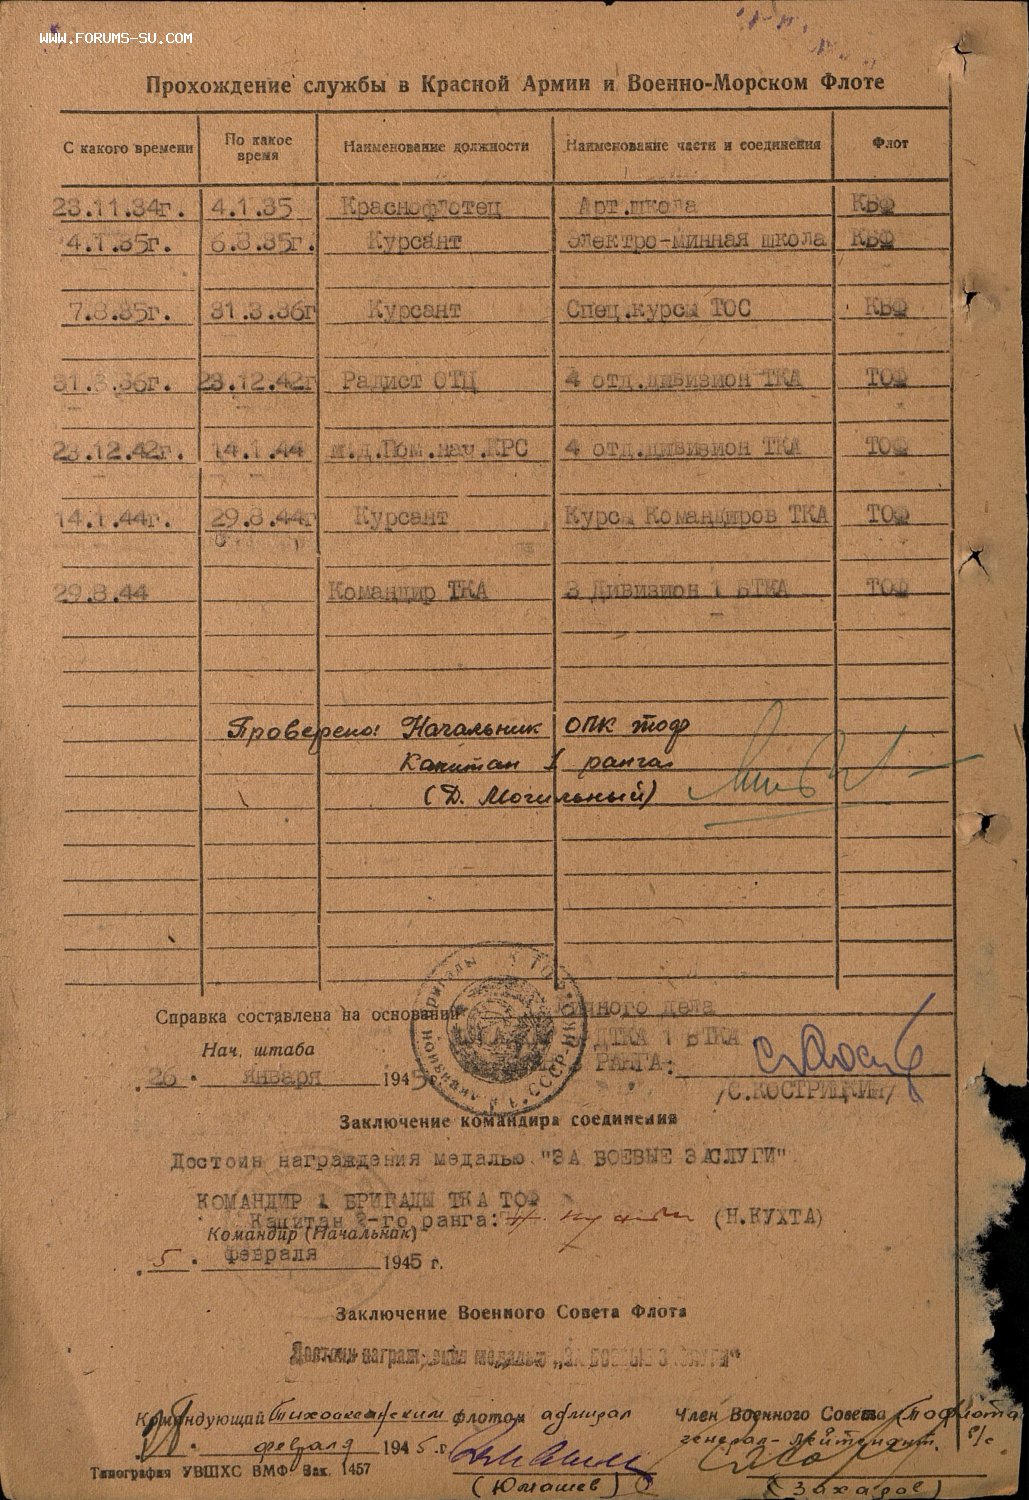 WWW.FORUMS-SU.COM
Прохождение службы в Красной Армии и Военно-Морском Флоте
С какого времени По какое время Наименование должности Наименование части и соединения Флот
23.11.34г. 4.1.35 Краснофлотец Арт.школа КБФ
4.1.35г. 6.8.35г. Курсант Электро-минная школа КБФ
7.8.35г. 31.3.36г Курсант Спец.курсы ТОС КБФ
31.3.36г. 23.12.42г Радист ОТЦ 4 отд.дивизион ТКА ТОФ
23.12.42г. 14.1.44 и.д.Пом.нач.КРС 4 отд.дивизион ТКА ТОФ
14.1.44г. 29.8.44г Курсант Курсы Командиров ТКА ТОФ
29.8.44 Командир ТКА 3 Дивизион 1 БТКА ТОФ
Проверено: Начальник ОПК ТОФ
Капитан 1 ранга
(Д. Могильный)
Справка составлена на основании личного дела
ДТКА 1 БТКА
Нач. штаба
РАНГА:
26 января 1945 г.
/С.КОСТРИЦКИЙ/
Заключение командира соединения
Достоин награждения медалью "ЗА БОЕВЫЕ ЗАСЛУГИ"
КОМАНДИР 1 БРИГАДЫ ТКА ТОФ
Капитан 2-го ранга: (Н.КУХТА)
Командир (Начальник)
5 февраля 1945 г.
Заключение Военного Совета Флота
Достоин награждения медалью „ЗА БОЕВЫЕ ЗАСЛУГИ"
Командующий Тихоокеанским флотом адмирал
Член Военного Совета Тофлота
генерал-лейтенант б/с
февраля 1945 г.
Типография УВШХС ВМФ Зак. 1457
(Юмашев)
(Захаров)